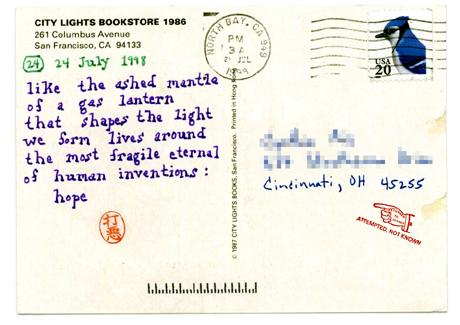 CITY LIGHTS BOOKSTORE 1986
261 Columbus Avenue
San Francisco, CA 94133
24 24 July 1998
like the ashed mantla
of a gas lantern
that shapes the light
we form lives around
the most fragile eternal
of human inventions:
hope
打憑
NORTH BAY, CA 949
PM
JUL
USA
20
© 1997 CITY LIGHTS BOOKS, San Francisco. Printed in Hong
Cincinnati, OH 45255
ATTEMPTED, NOT KNOWN